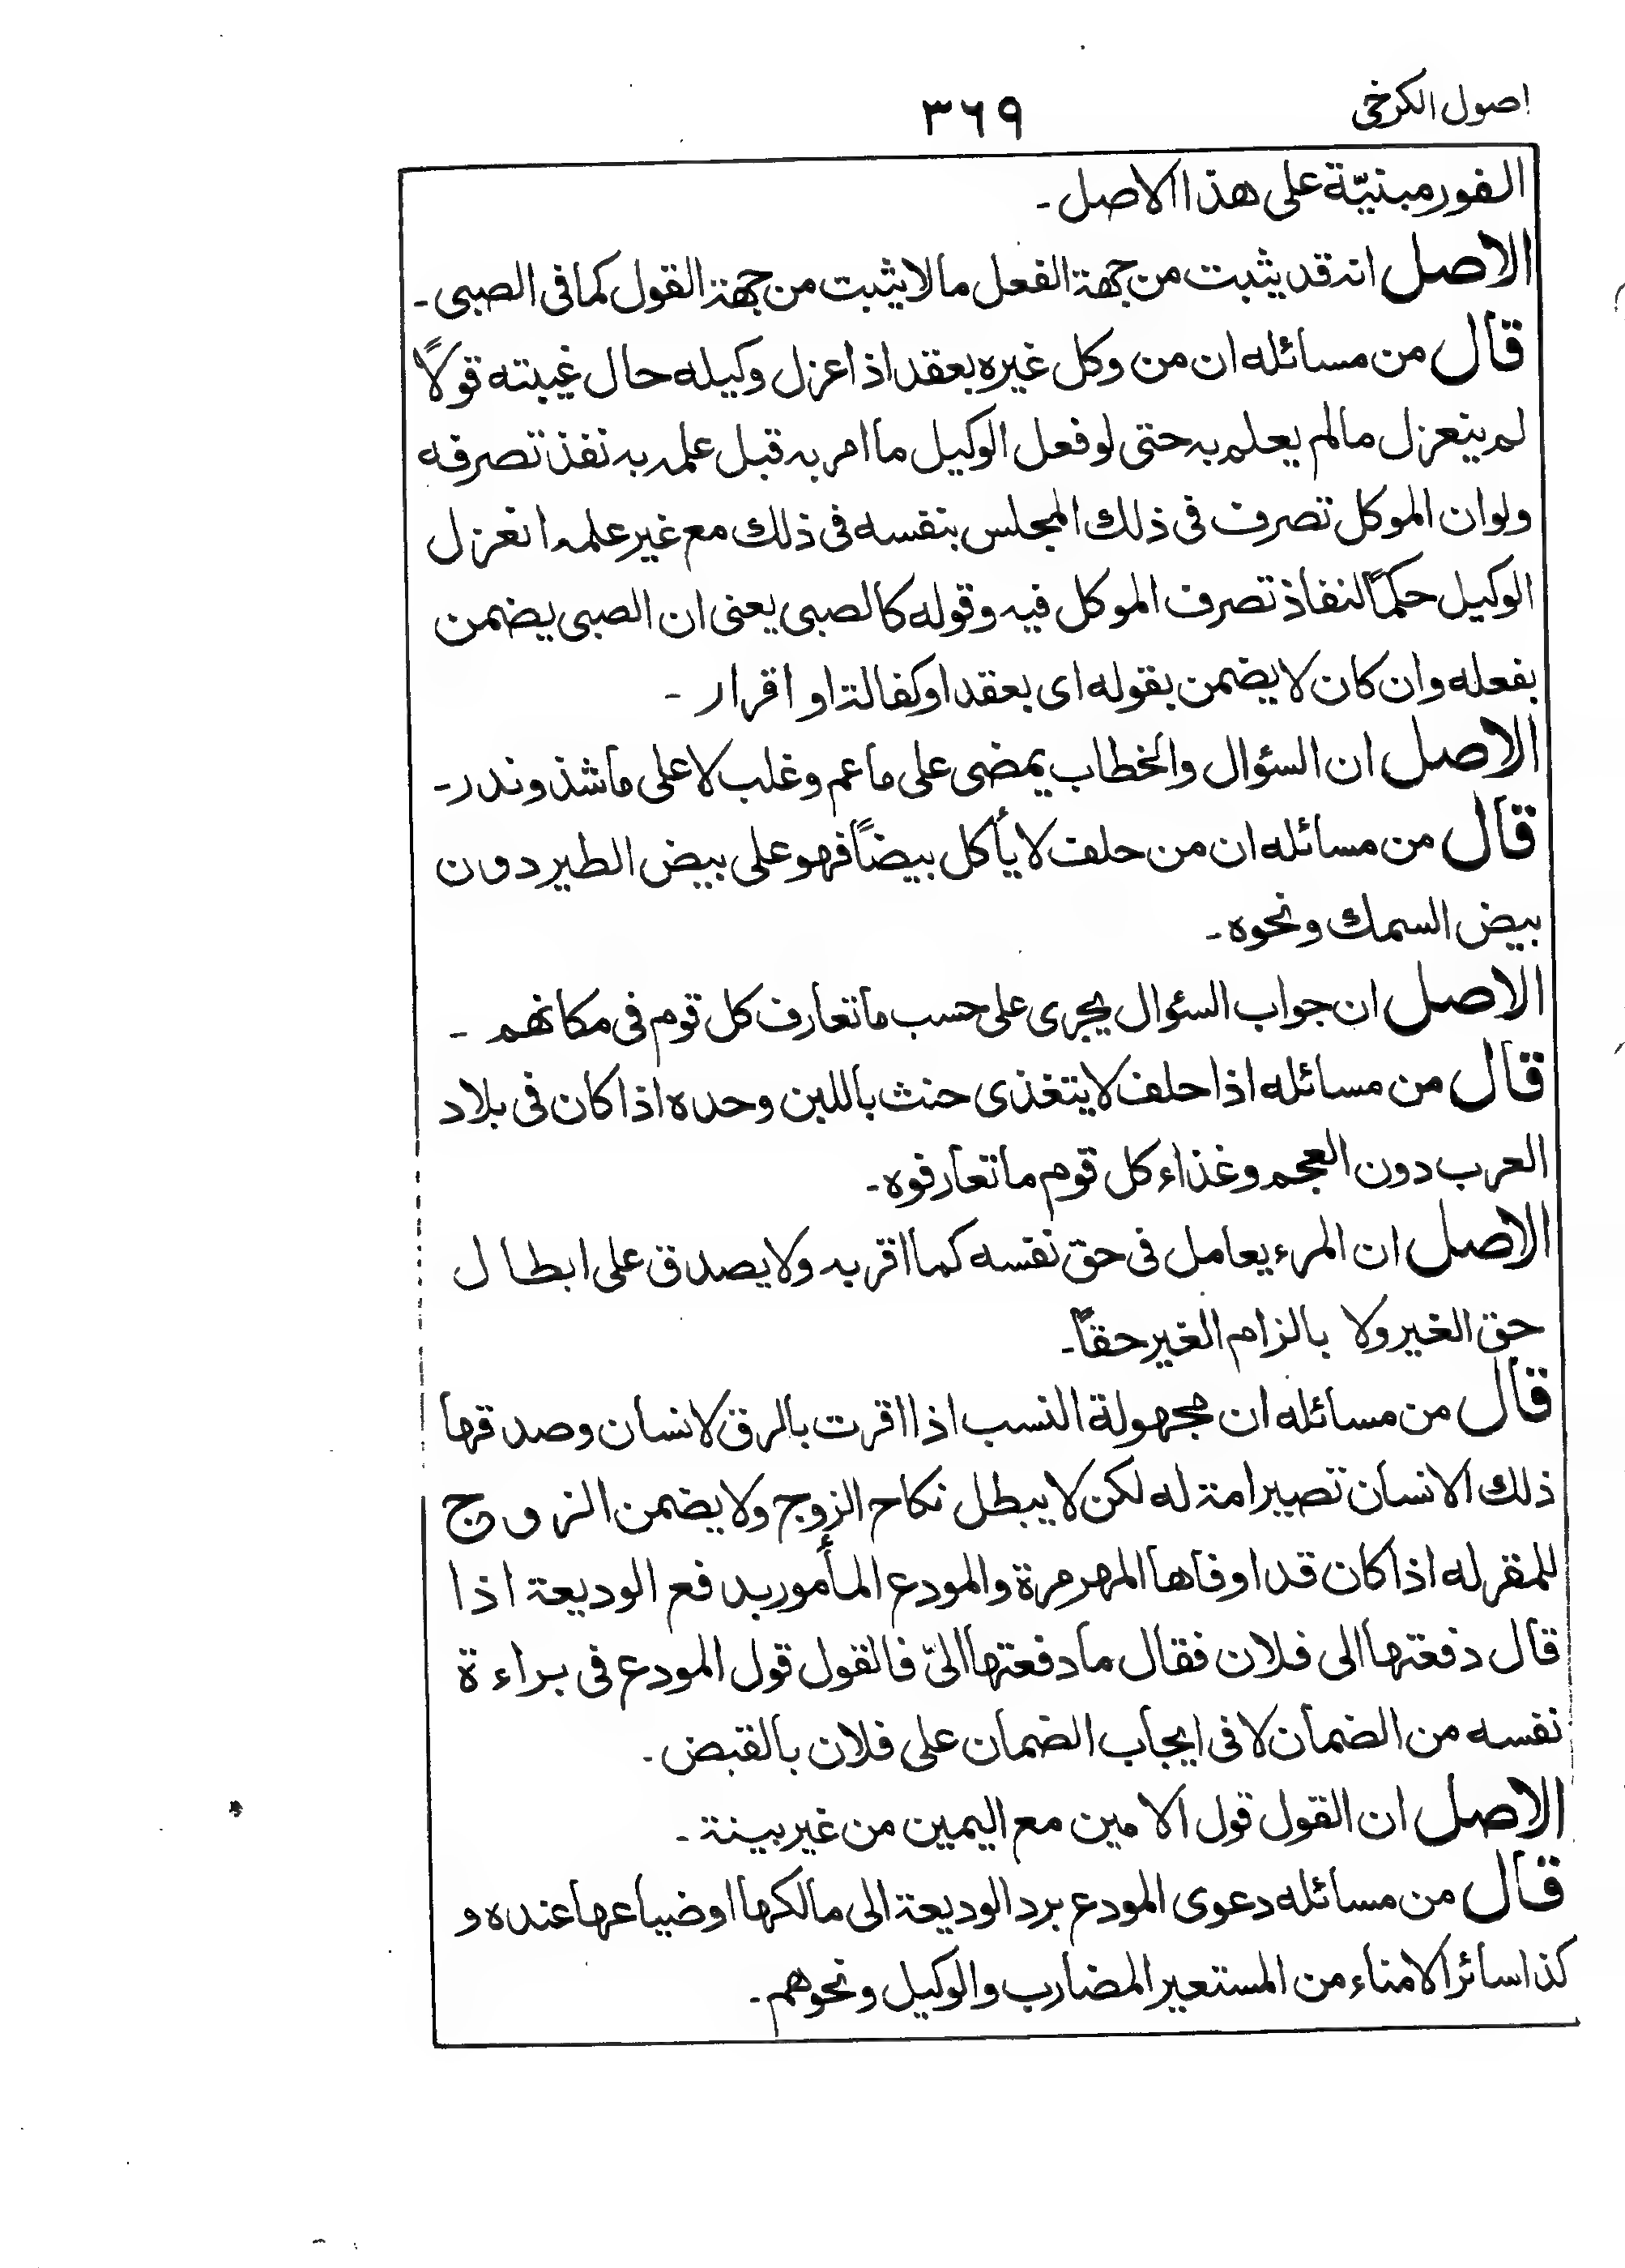 اصول الكرخى
٣٦٩
الفور مبنيّة على هذا الاصل ـ
الاصل انه قد يثبت من جهة الفعل ما لا يثبت من جهة القول كما فى الصبى ـ
قال من مسائله ان من وكل غيره بعقد اذا عزل وكيله حال غيبته قولًا
لم ينعزل ما لم يعلم به حتى لو فعل الوكيل ما امر به قبل علمه به نفذ تصرفه
ولو ان الموكل تصرف فى ذلك المجلس بنفسه فى ذلك مع غير علمه انعزل
الوكيل حكمًا لنفاذ تصرف الموكل فيه وقوله كالصبى يعنى ان الصبى يضمن
بفعله وان كان لا يضمن بقوله اى بعقد او كفالة او اقرار ـ
الاصل ان السؤال والخطاب يمضى على ما عم وغلب لا على ما شذ وندر ـ
قال من مسائله ان من حلف لا يأكل بيضًا فهو على بيض الطير دون
بيض السمك ونحوه ـ
الاصل ان جواب السؤال يجرى على حسب ما تعارف كل قوم فى مكانهم ـ
قال من مسائله اذا حلف لا يتغذى حنث باللبن وحده اذا كان فى بلاد
العرب دون العجم وغذاء كل قوم ما تعارفوه ـ
الاصل ان المرء يعامل فى حق نفسه كما اقر به ولا يصدق على ابطال
حق الغير ولا بالزام الغير حقًا ـ
قال من مسائله ان مجهولة النسب اذا اقرت بالرق لانسان وصدقها
ذلك الانسان تصير امة له لكن لا يبطل نكاح الزوج ولا يضمن الزوج
للمقر له اذا كان قد اوفاها المهر مرة والمودع المأمور بدفع الوديعة اذا
قال دفعتها الى فلان فقال ما دفعتها الىّ فالقول قول المودع فى براءة
نفسه من الضمان لا فى ايجاب الضمان على فلان بالقبض ـ
الاصل ان القول قول الامين مع اليمين من غير بينة ـ
قال من مسائله دعوى المودع برد الوديعة الى مالكها او ضياعها عنده و
كذا سائر الامناء من المستعير المضارب والوكيل ونحوهم ـ